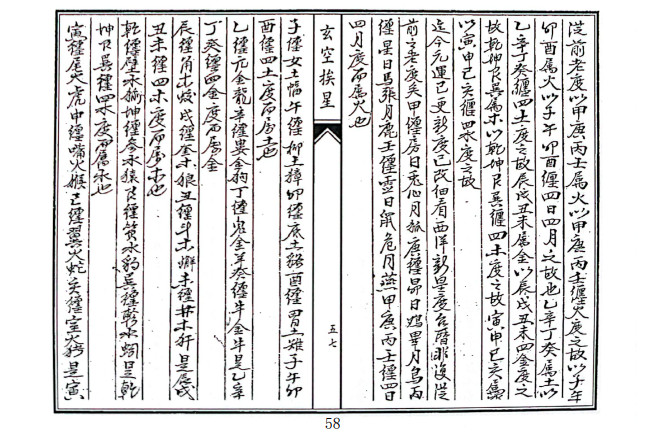 從前老度以甲庚丙壬属火以甲庚丙壬纏火度之故以子午
卯酉属火以子午卯酉纏四日四月之故也乙辛丁癸属土以
乙辛丁癸纏四土度之故辰戌丑未属金以辰戌丑未四金度之
故乾坤艮巽属木以乾坤艮巽纏四木度之故寅申巳亥属
以寅申巳亥纏四水度之故
迄今元運已更新度已改但看西洋新星度台曆即復從
前之老度矣甲纏房日兎心月狐庚纏昴日鸡畢月烏丙
纏星日馬張月鹿壬纏虚日鼠危月燕甲庚丙壬纏四日
四月度而属火也
玄空挨星
五七
子纏女土蝠午纏柳土獐卯纏底土貉酉纏胃土雉子午卯
酉纏四土度而属土也
乙纏亢金龍辛纏婁金狗丁纏鬼金羊癸纏牛金牛是乙辛
丁癸纏四金度而属金
辰纏角木蛟戌纏奎木狼丑纏斗木獬未纏井木犴是辰戌
丑未纏四木度而属木也
乾纏壁水㺄坤纏参水猿艮纏箕水豹巽纏軫水蚓是乾
坤艮巽纏四水度而属水也
寅纏尾火虎申纏嘴火猴巳纏翼火蛇亥纏室火猪是寅
58